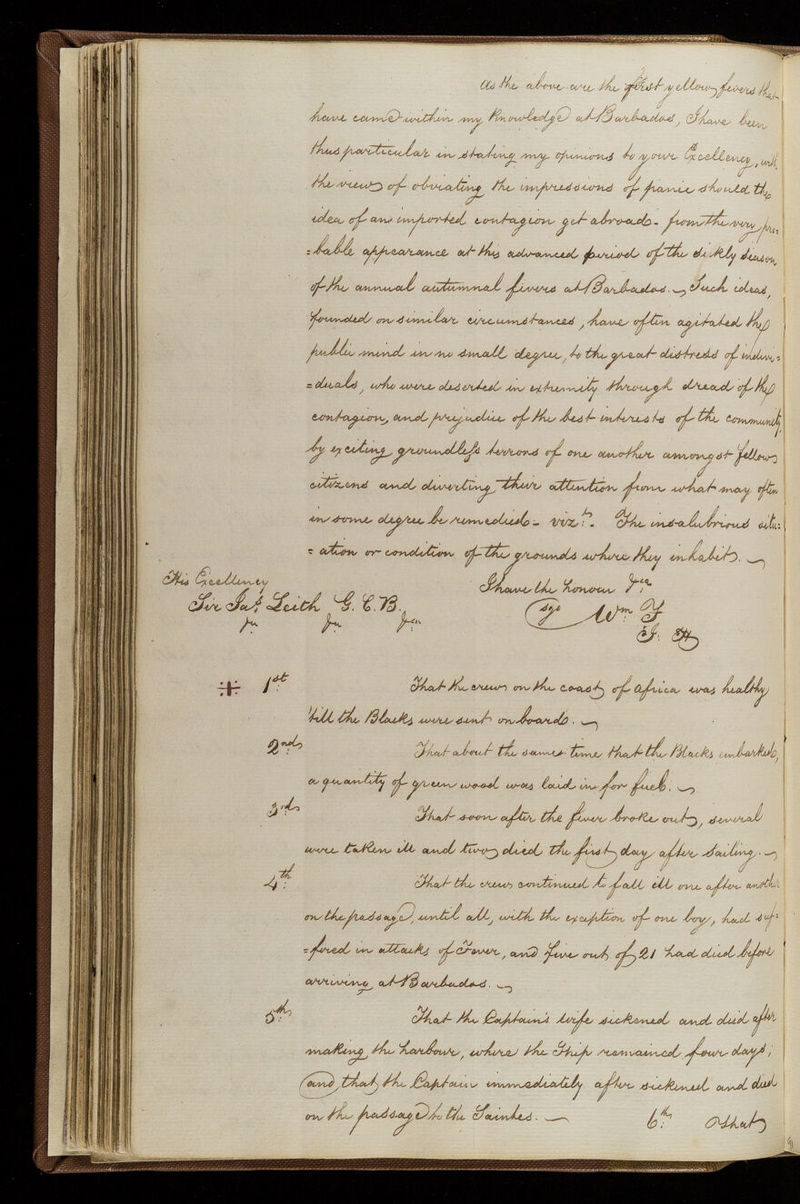 As the above are the first yellow fevers that
have came within my Knowledge at Barbados, I have been
thus particular in stating my opinions to your Excellency, with
the view of obviating the impressions of panic should the
idea of an imported contagion get abroad - from the very pro=
=bable appearance at this advanced period of the sikly season
of the annual autumnal fevers at Barbados. Such ideas,
founded on similar circumstances, have often agitated the
public mind in no small degree, to the great distress of indivi=
=duals, who were deserted in extremity through dread of the
contagion, and prejudice of the best interests of the community,
by exciting groundless terrors of one another amongst fellow
citizens and diverting their attention from what may often
in some degree be remedied - vizt. The insalubrious situ=
=ation or condition of the grounds where they inhabit.
I have the honour &ca
His Excellency
Sir Jas. Leith G. C. B.
&c &c &ca
(sgd Wm F
✣ 1st That the crew on the coast of Africa was healthy
'till the Blacks were sent on board.
2nd That about the same time that the Blacks embarked,
a quantity of green wood was laid in for fuel.
3rd That soon after the fever broke out, several
were taken ill and two died the first day after Sailing.
4th That the crew continued to fall ill one after another
on the passage, until all, with the exception of one boy, had suf=
=fered in attacks of Fever, and five out of 21 had died before
arriving at Barbados.
5th That the Captain's wife sickened and died after
making the harbour, where the Ship remained four days;
(and) that the Captain immediately after sickened and died
on the passage to the Saintes.
6th That